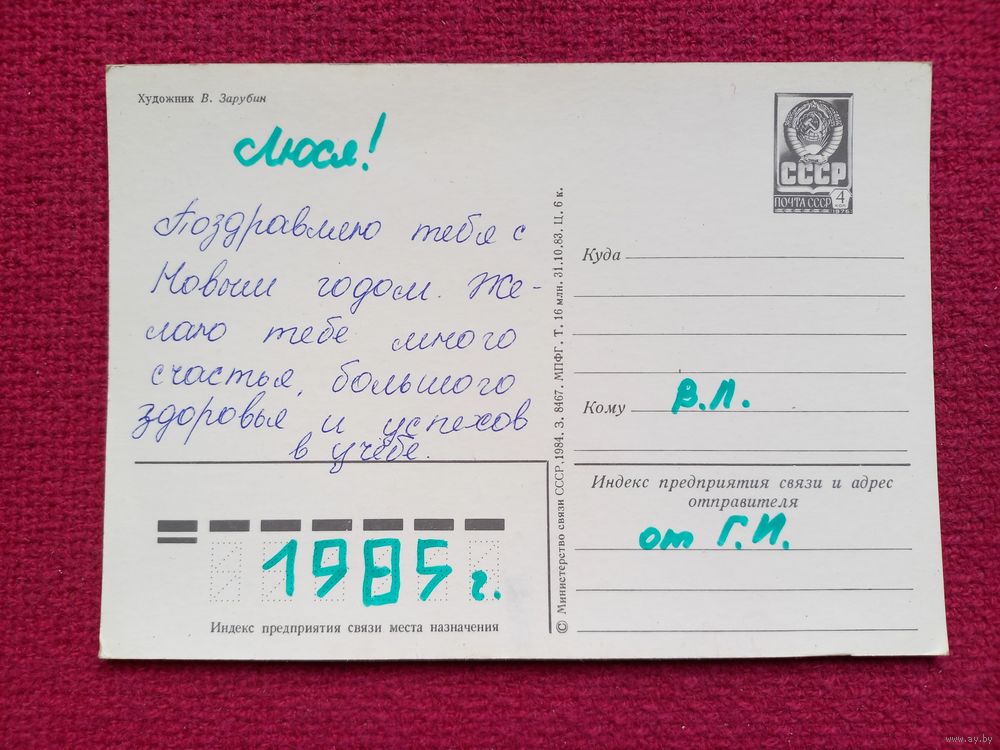 Художник В. Зарубин
Люся!
Поздравляю тебя с
Новым годом. Же-
лаю тебе много
счастья, большого
здоровья и успехов
в учёбе.
1985 г.
Индекс предприятия связи места назначения
© Министерство связи СССР, 1984. З. 8467. МПФГ. Т. 16 млн. 31.10.83. Ц. 6 к.
СССР
ПОЧТА СССР 4
КОП
1976
Куда
Кому В.Л.
Индекс предприятия связи и адрес
отправителя
от Г.И.
www.ay.by